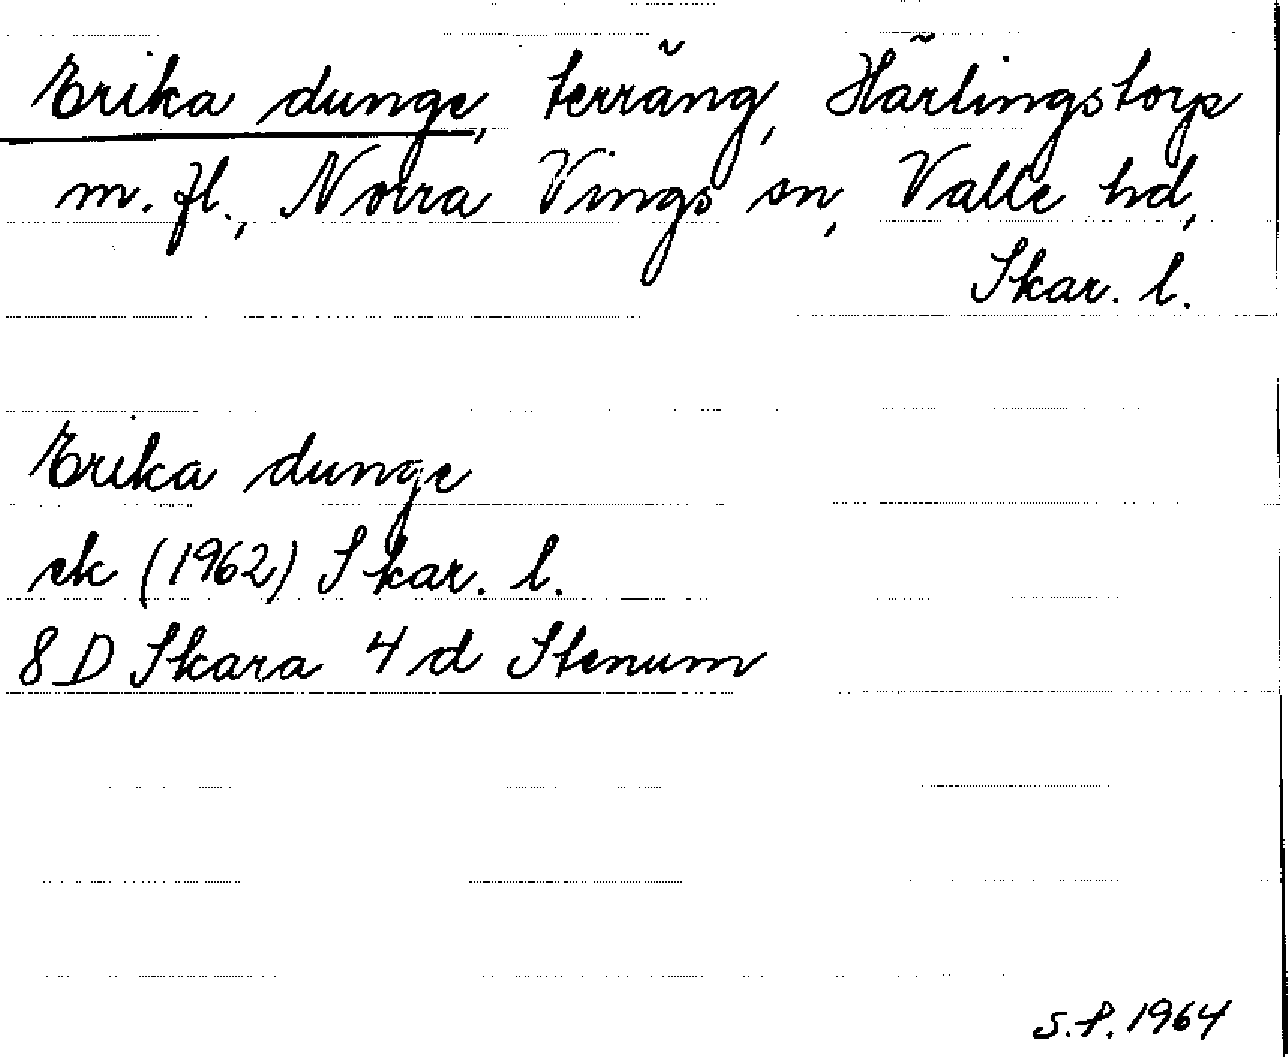 Erika dunge, terräng, Härlingstorp
m. fl., Norra Vings sn, Valle hd,
Skar. l.
Erika dunge
ek (1962) Skar. l.
8 D Skara 4 d Stenum
S.P. 1964